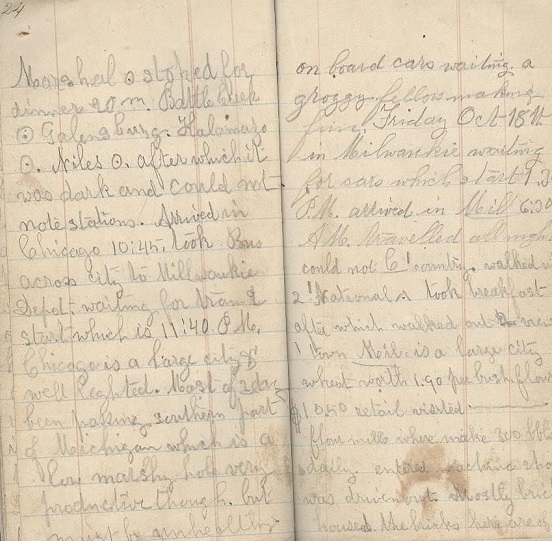 24
Marshal ⊙ stoped for
dinner 20 m. Battle Creek
⊙ Galensburg. Kalamazo
⊙. Niles ⊙. after which it
was dark and could not
note stations. Arrived in
Chicago 10:45. took Bus
across city to Millwaukie
Depot. waiting for train
start which is 11:40 P.M.
Chicago is a large city &
well lighted. Most of day
been passing southern part
of Michigan which is a
low marshy hole very
productive though. but
must be unhealthy.
on board cars waiting. a
groggy fellow making
fun. Friday Oct 18th
in Milwaukie waiting
for cars which start 1.3
P.M. arrived in Mill 6:30
A.M. travelled all night
could not C country. walked
2 National took breakfast
after which walked out
town Mil. is a large city
wheat worth 1.90 per bush flour
$10.50 retail visited
flour mills where make 300 bbls
daily. entered machine sho
was driven out. Mostly bric
houses. the bricks here are of